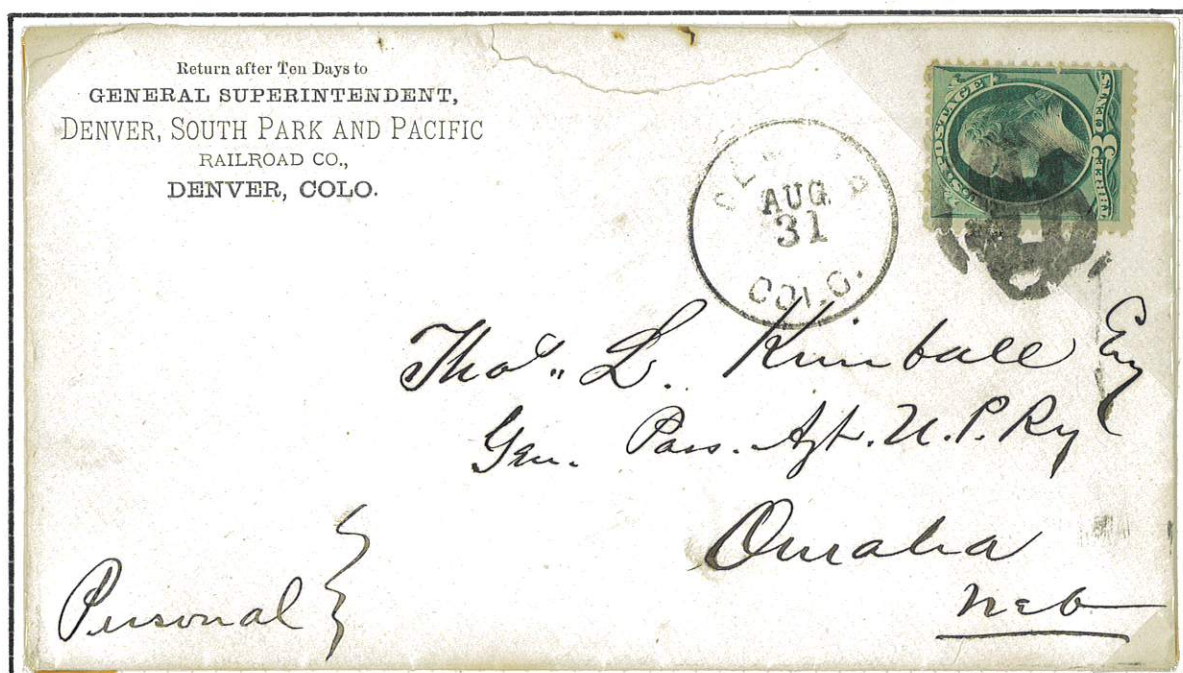 Return after Ten Days to
GENERAL SUPERINTENDENT,
DENVER, SOUTH PARK AND PACIFIC
RAILROAD CO.,
DENVER, COLO.
U.S. POSTAGE
THREE 3 CENTS
AUG
31
COLO.
Thos. L. Kimball Esq
Gen. Pass. Agt. U.P. Ry
Omaha
Neb
Personal